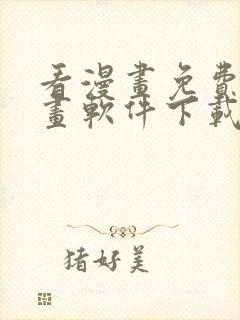 看漫畫免費
畫軟件下載
猪好美